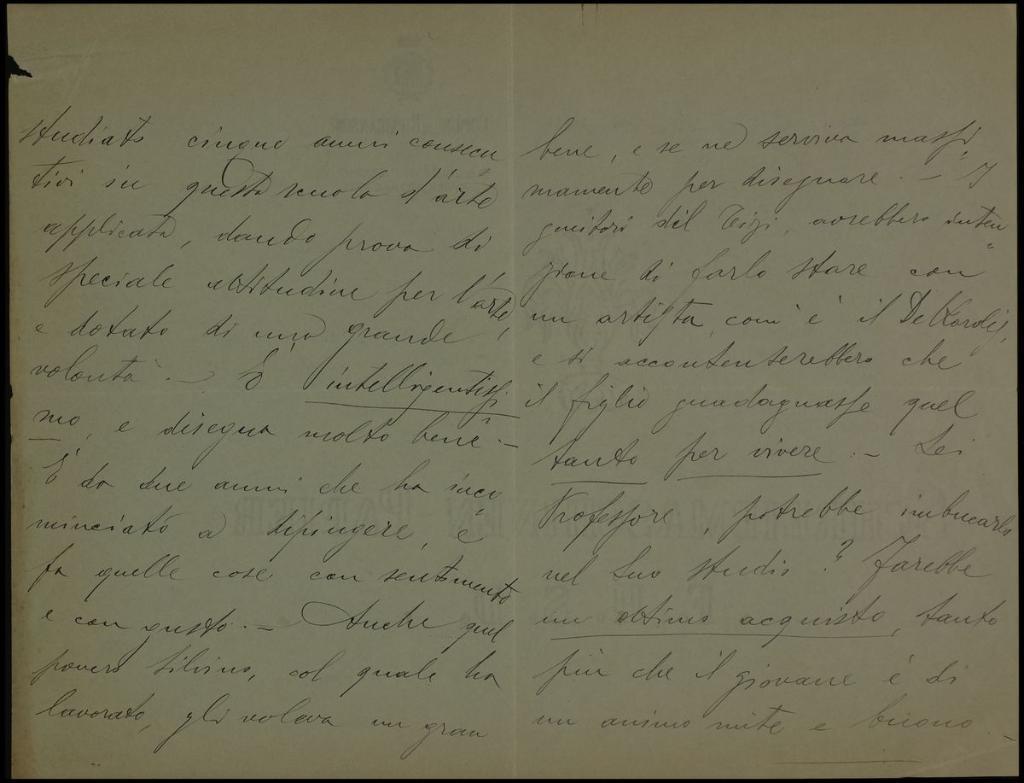 studiato cinque anni consecu
tivi in questa scuola d'arte
applicata, dando prova di
speciale attitudine per l'arte,
e dotato di una grande
volontà. — È intelligentissi
mo, e disegna molto bene —
È da due anni che ha inco
minciato a dipingere, e
fa quelle cose con sentimento
e con gusto. — Anche quel
povero Silvino, col quale ha
lavorato, gli voleva un gran
bene, e se ne serviva massi
mamente per disegnare. — I
genitori del Tizi, avrebbero inten
zione di farlo stare con
un artista com'è il De Karolis,
e si accontenterebbero che
il figlio guadagnasse quel
tanto per vivere. — Lei
Professore, potrebbe imbucarlo
nel Suo studio? Farebbe
un ottimo acquisto, tanto
più che il giovane è di
un animo mite e buono —